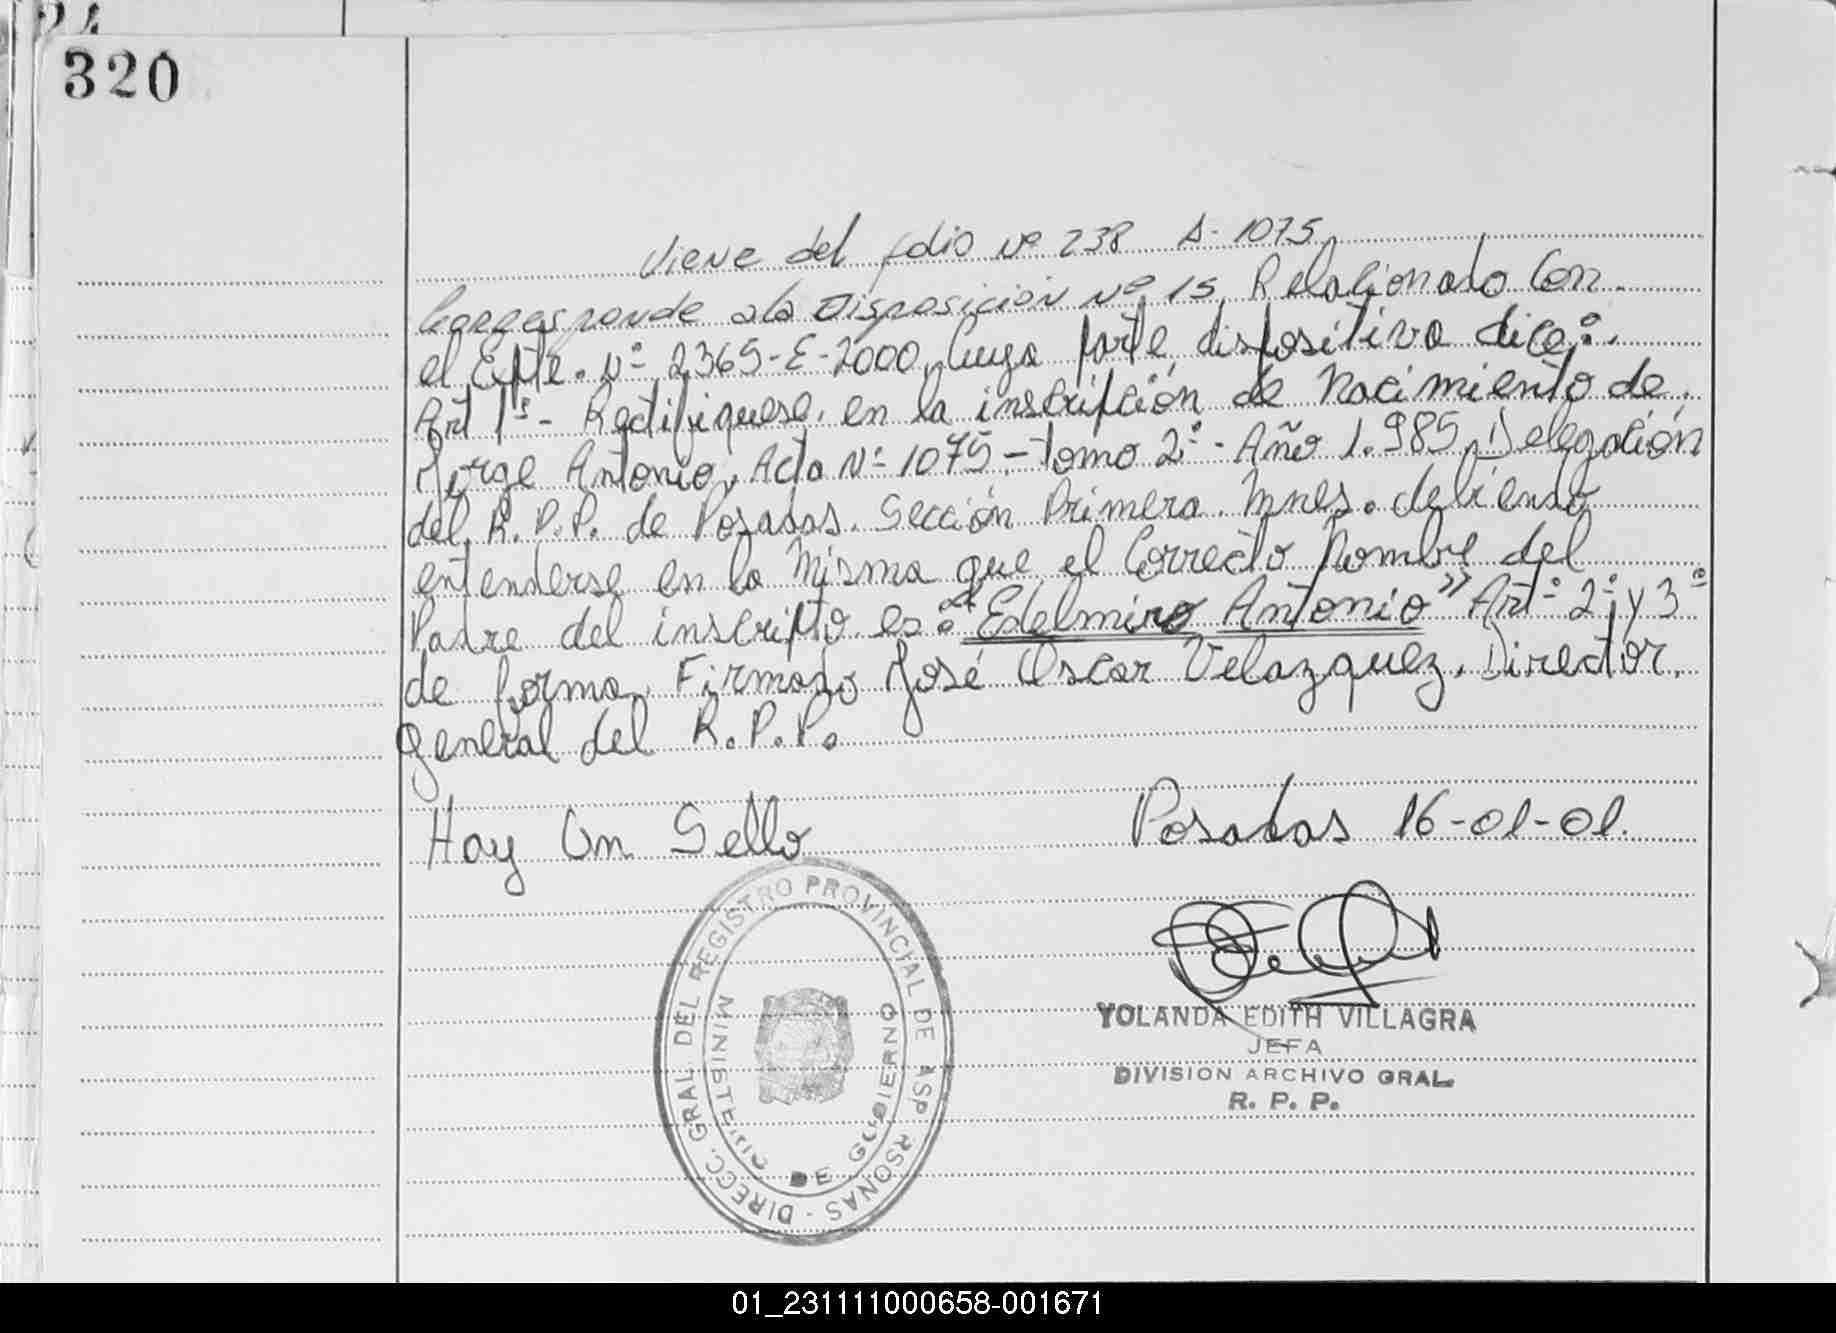 24
320
Viene del folio Nº 238 A-1075
Corresponde a la Disposición Nº 15, Relacionado Con
el Expte. Nº 2365-E-2000, Cuya parte dispositiva dice:
Art 1º- Rectifiquese, en la inscripción de Nacimiento de
Jorge Antonio, Acta Nº 1075-Tomo 2º- Año 1.985, Delegación
del R.P.P. de Posadas. Sección Primera. Mnes. debiendo
entenderse en la Misma que el Correcto Nombre del
Padre del inscripto es: "Edelmiro Antonio" Artº 2º y 3º
de forma. Firmado José Oscar Velazquez. Director
General del R.P.P.
Hay Un Sello
Posadas 16-01-01.
DIRECC. GRAL DEL REGISTRO PROVINCIAL DE AS P RSONAS -
MINISTERIO DE GOBIERNO
YOLANDA EDITH VILLAGRA
JEFA
DIVISION ARCHIVO GRAL.
R. P. P.
01_231111000658-001671